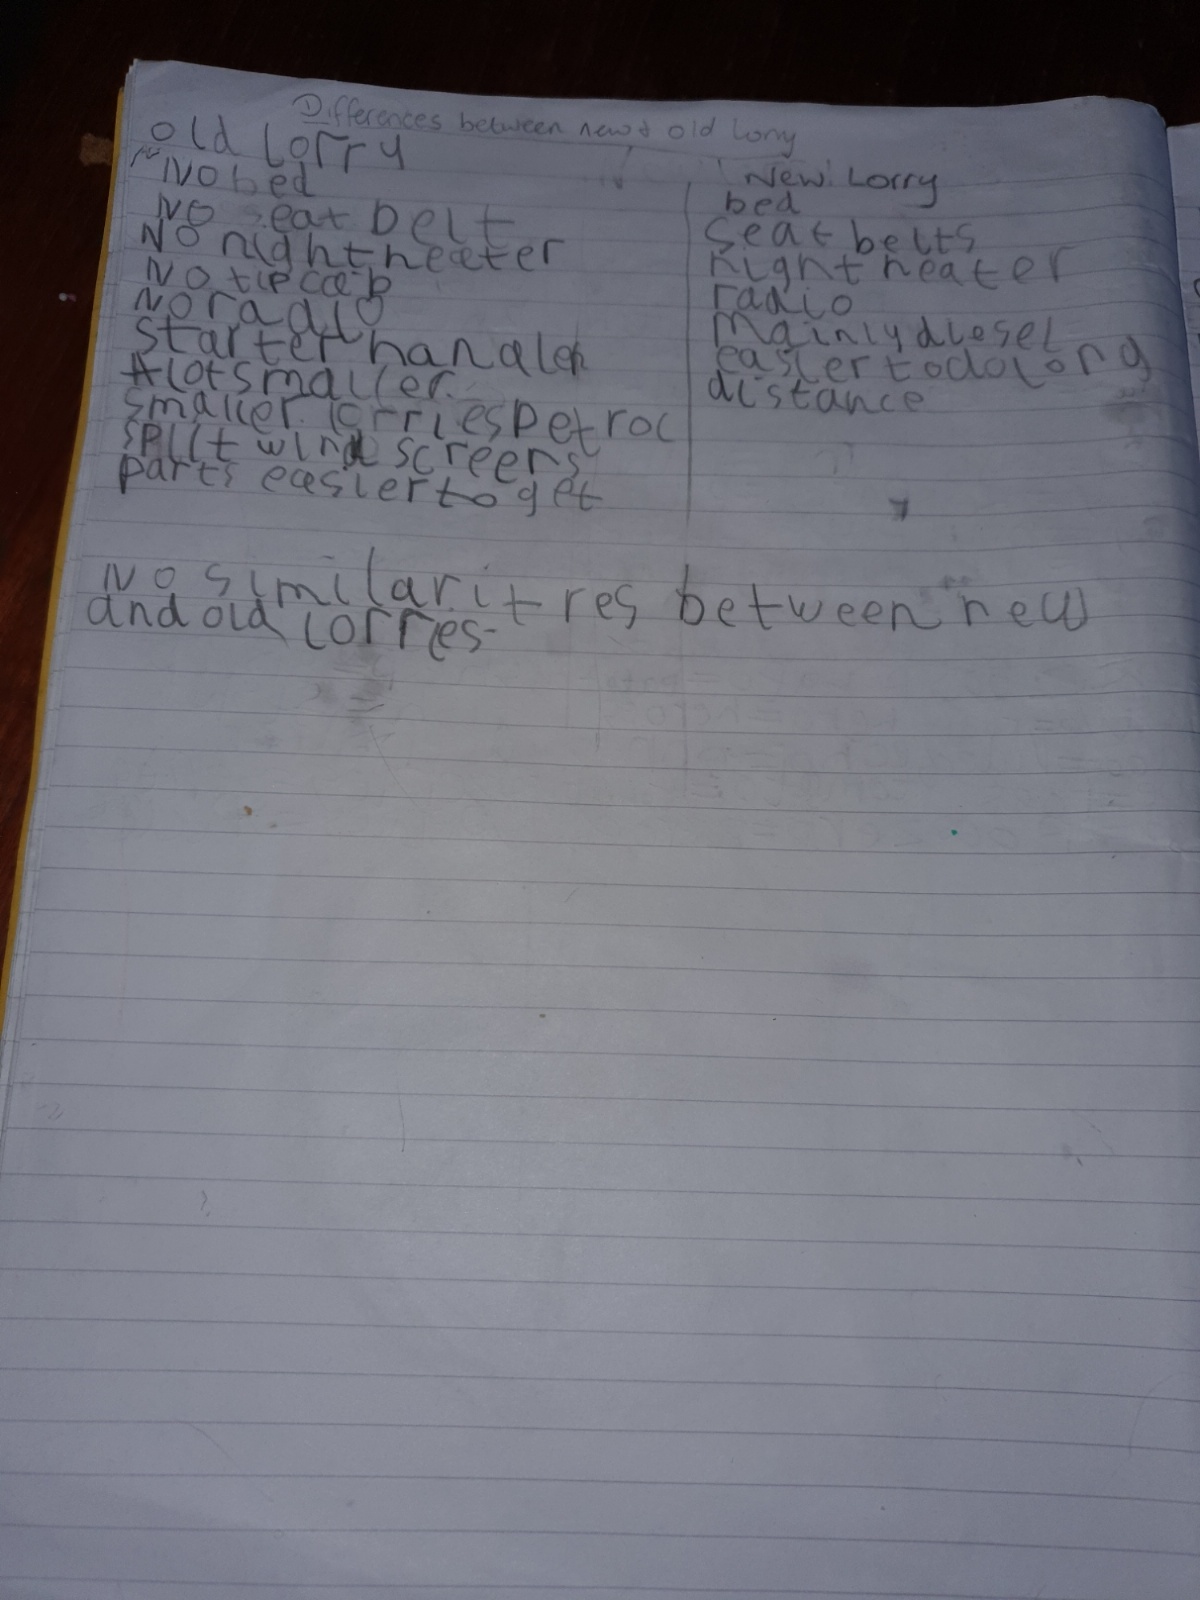 Differences between new & old Lorry
old lorry
No bed
No seat belt
No night heater
No tip cab
No radio
Starter handle
A lot smaller.
smaller lorries petrol
split wind screens
parts easier to get
New Lorry
bed
seat belts
night heater
radio
Mainly diesel
easier to do long
distance
No similaritres between new
and old lorres